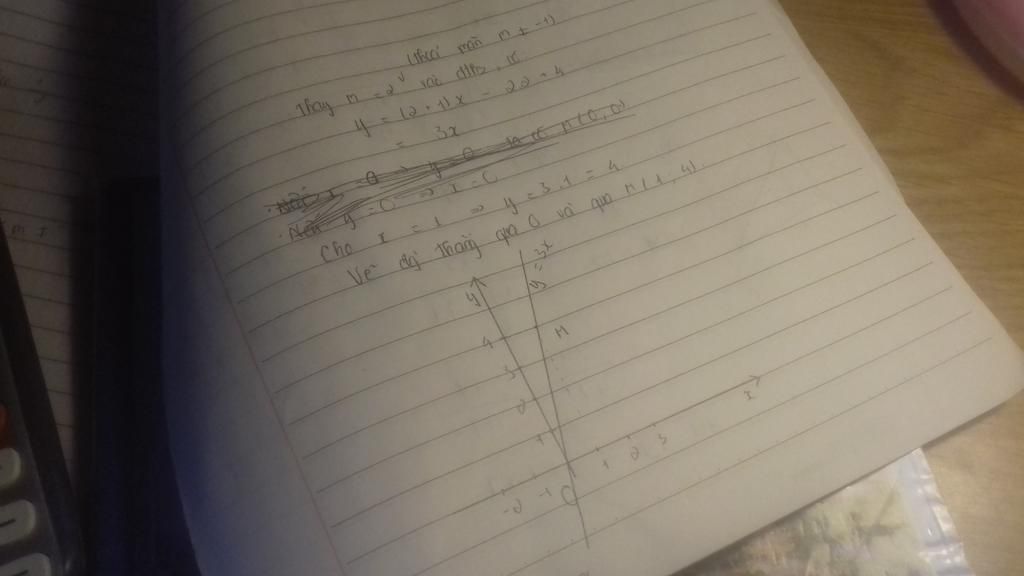 (thoả mãn m ≠ -1)
Thay m = 2 vào đths, ta có
y = (2+1)x - 2.2 + 4
= 3x
y = 0 → x = 0
Cho x = 1 ⇒ y = 3.1 = 4
Vẽ đg thẳng qua O và qua M(1,4).
y = 3x
y
4
M
3
2
x
1
1 2 3
-2 -1 O